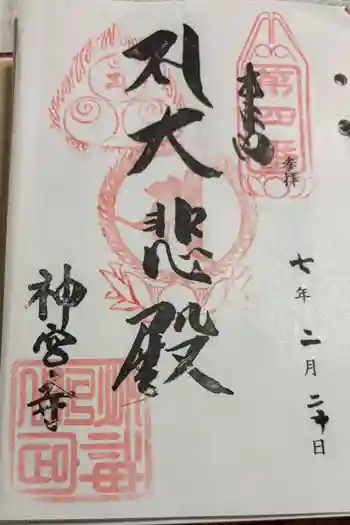 第四番
奉
参拝
七年二月二十日
大悲殿
神宮寺